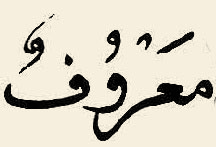 مَعْرُوُفٌ